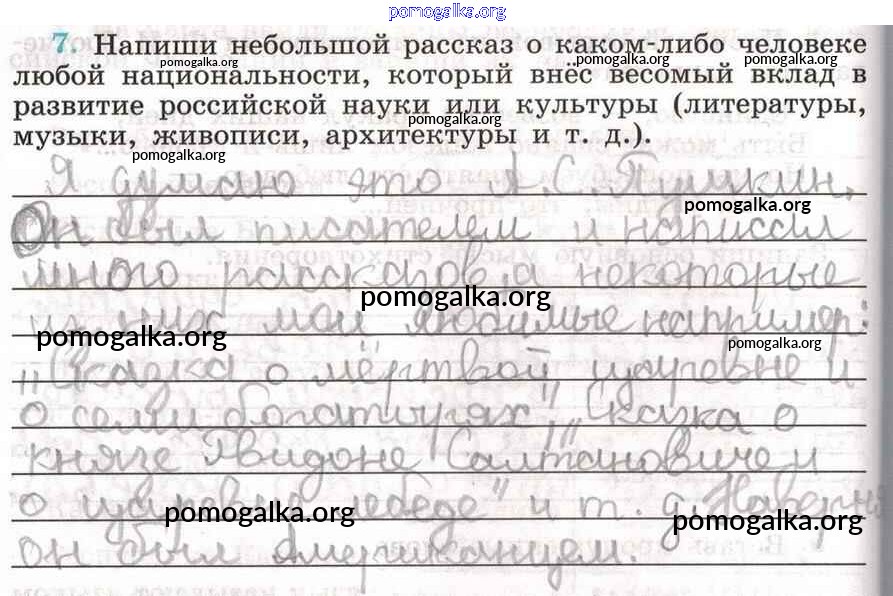 pomogalka.org
7. Напиши небольшой рассказ о каком-либо человеке
pomogalka.org pomogalka.org pomogalka.org
любой национальности, который внёс весомый вклад в
развитие российской науки или культуры (литературы,
pomogalka.org
музыки, живописи, архитектуры и т. д.).
pomogalka.org
Я думаю это А.С. Пушкин.
pomogalka.org
Он был писателем и написал
много рассказов, а некоторые
pomogalka.org
из них мои любимые например:
pomogalka.org pomogalka.org
„Сказка о мёртвой царевне и
о семи богатырях", „Сказка о
князе Гвидоне Салтановиче и
о царевне лебеде" и т. д. Наверн
pomogalka.org pomogalka.org
он был Американцем.